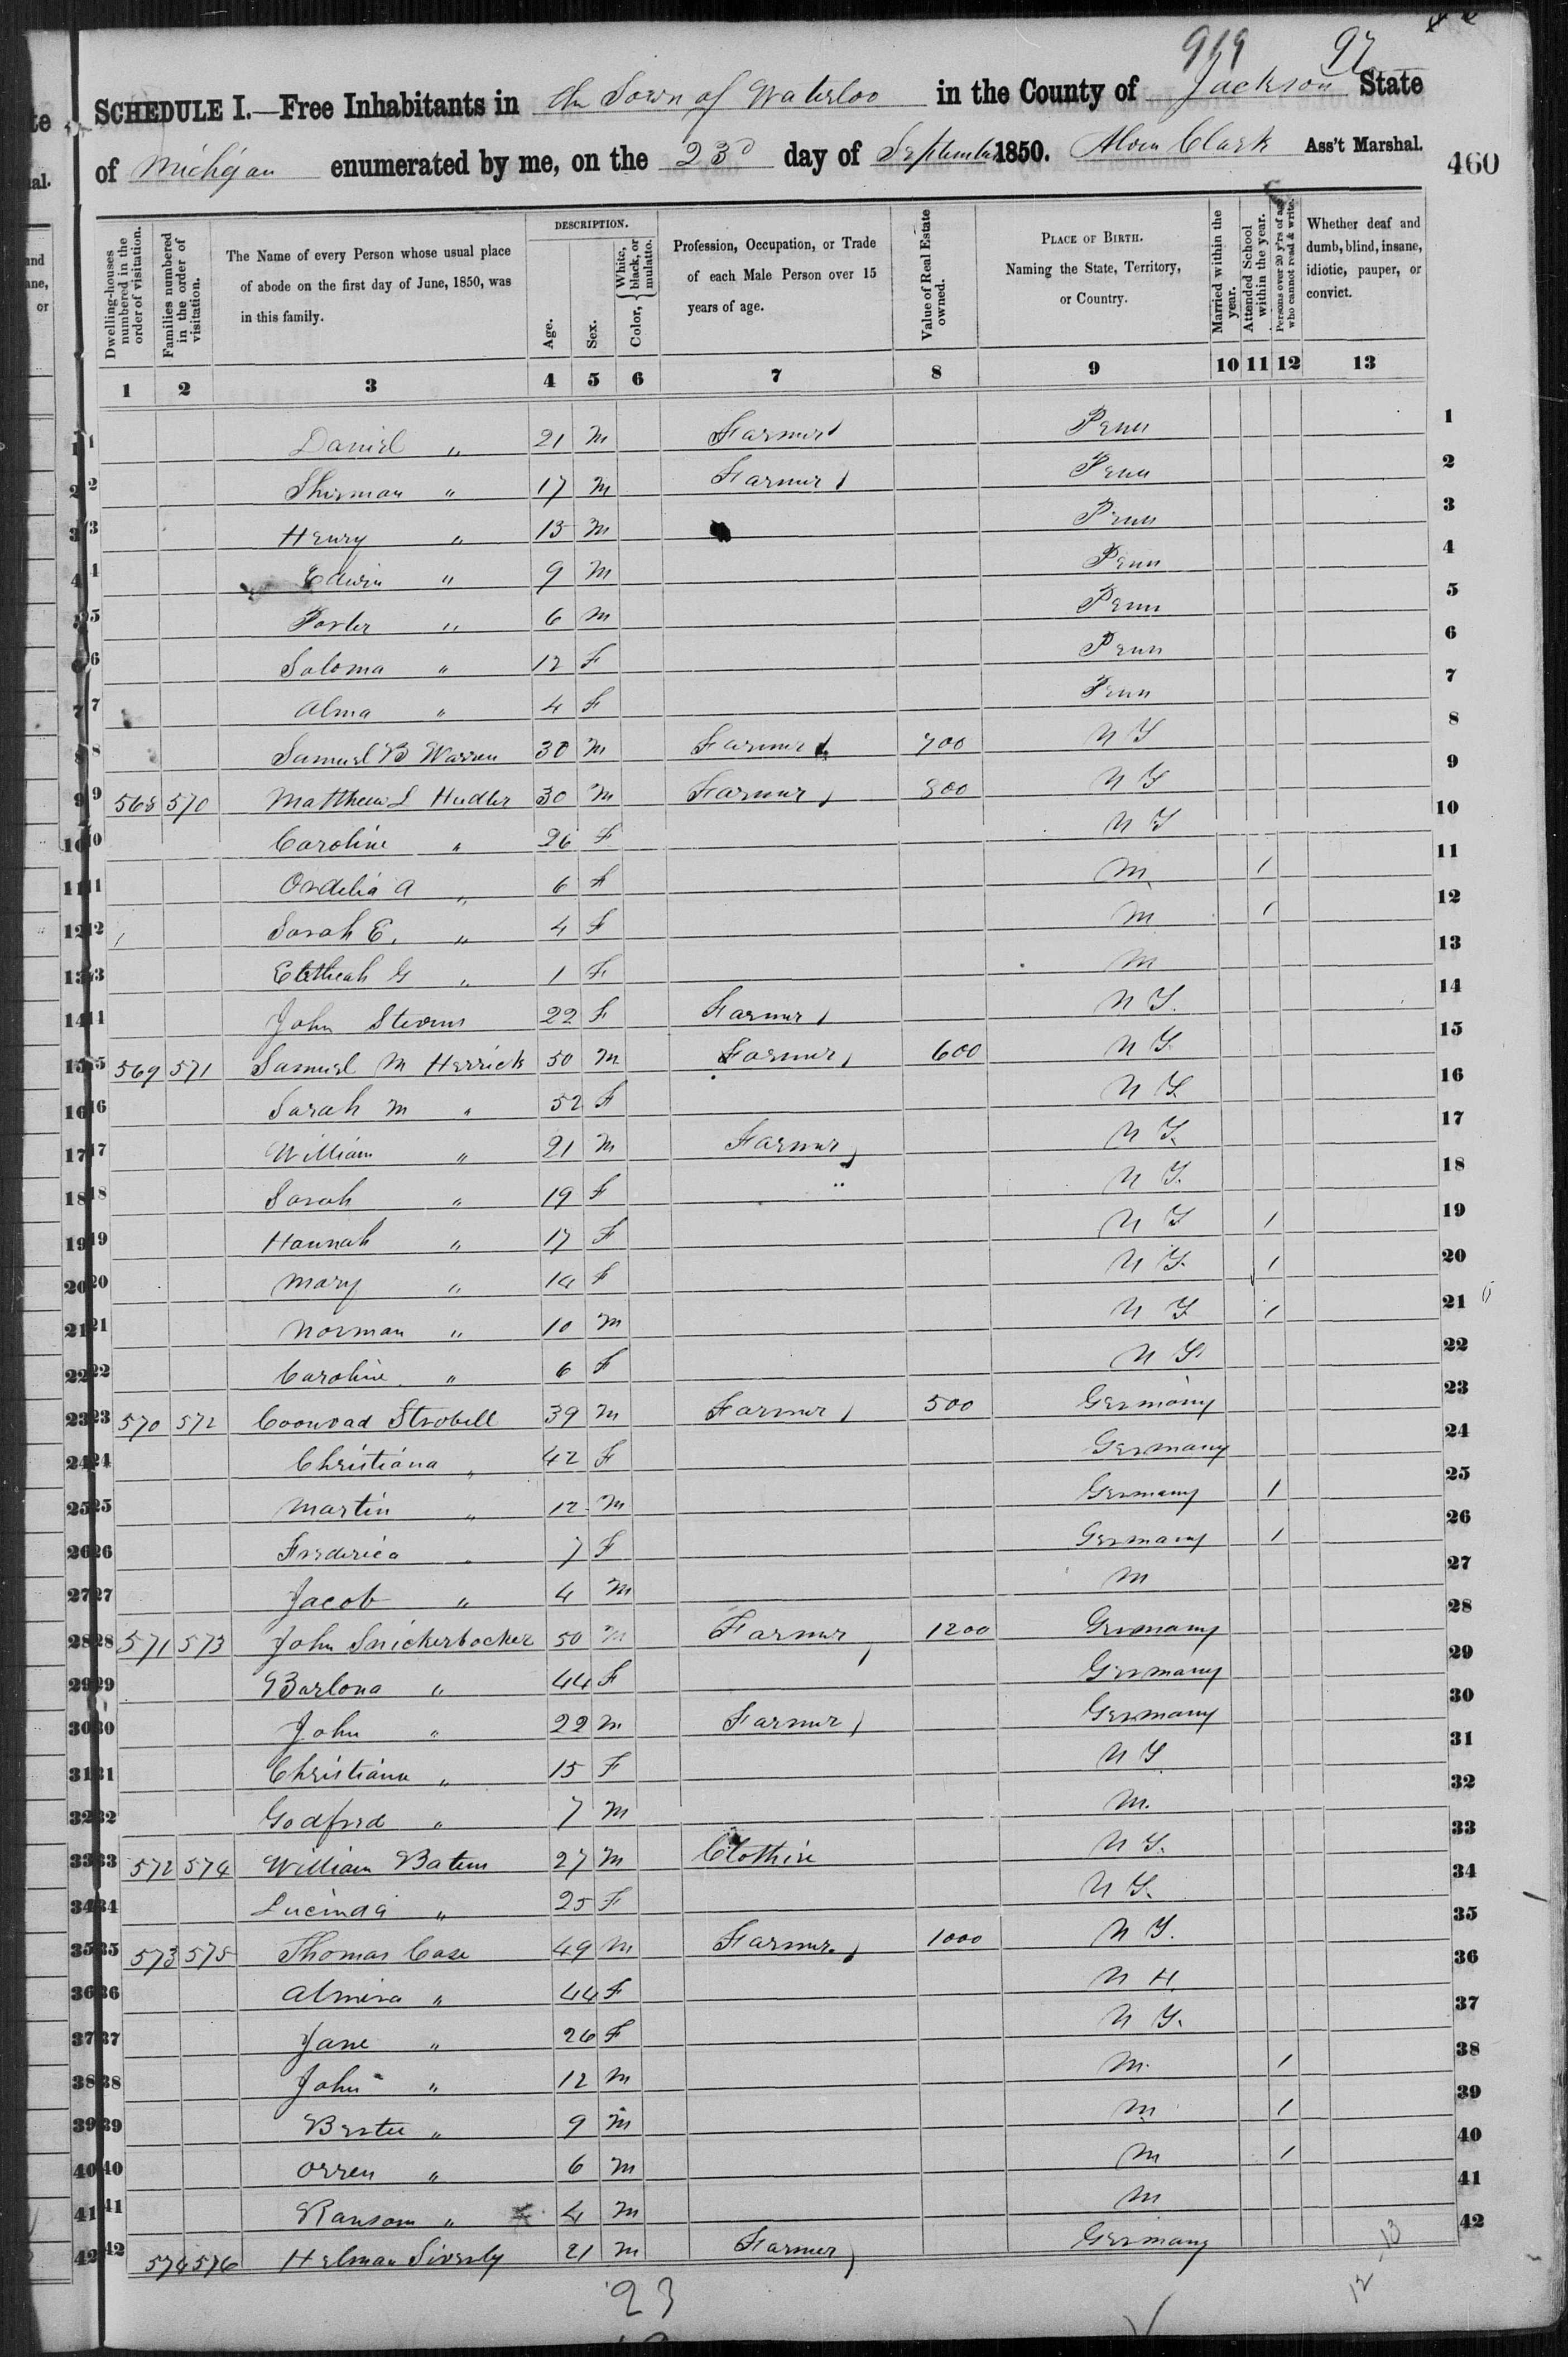 919 97
SCHEDULE I.—Free Inhabitants in the Town of Waterloo in the County of Jackson State
of Michigan enumerated by me, on the 23d day of September 1850. Alvin Clark Ass't Marshal.
460
Dwelling-houses numbered in the order of visitation.
Families numbered in the order of visitation.
The Name of every Person whose usual place of abode on the first day of June, 1850, was in this family.
DESCRIPTION.
Age.
Sex.
Color, { White, black, or mulatto.
Profession, Occupation, or Trade of each Male Person over 15 years of age.
Value of Real Estate owned.
PLACE OF BIRTH. Naming the State, Territory, or Country.
Married within the year.
Attended School within the year.
Persons over 20 y'rs of age who cannot read & write.
Whether deaf and dumb, blind, insane, idiotic, pauper, or convict.
1 2 3 4 5 6 7 8 9 10 11 12 13
1 Daniel " 21 M Farmer Penn 1
2 Shirman " 17 M Farmer Penn 2
3 Henry " 13 M Penn 3
4 Edwin " 9 M Penn 4
5 Porter " 6 M Penn 5
6 Saloma " 12 F Penn 6
7 Alma " 4 F Penn 7
8 Samuel B Warren 30 M Farmer 700 N Y 8
9 568 570 Matthew L Hudler 30 M Farmer 800 N Y 9
10 Caroline " 26 F N Y 10
11 Ordelia A " 6 F M 1 11
12 Sarah E. " 4 F M 1 12
13 G " 1 F M 13
14 John Stevens 22 F Farmer N Y. 14
15 569 571 Samuel M Herrick 50 M Farmer 600 N Y. 15
16 Sarah M " 52 F N Y. 16
17 William " 21 M Farmer N Y. 17
18 Sarah " 19 F N Y. 18
19 Hannah " 17 F N Y 1 19
20 Mary " 14 F N Y. 1 20
21 Norman " 10 M N Y 1 21
22 Caroline " 6 F N Y 22
23 570 572 Coonrad Strobell 39 M Farmer 500 Germany 23
24 Christiana " 42 F Germany 24
25 Martin " 12 M Germany 1 25
26 Frederica " 7 F Germany 1 26
27 Jacob " 4 M M 27
28 571 573 John Snickerbocker 50 M Farmer 1200 Germany 28
29 Barlona " 44 F Germany 29
30 John " 22 M Farmer Germany 30
31 Christiana " 15 F N Y 31
32 Godfred " 7 M M. 32
33 572 574 William Batem 27 M Clothire N Y. 33
34 Lucinda " 25 F N Y. 34
35 573 575 Thomas Case 49 M Farmer 1000 N Y. 35
36 Almira " 44 F N H. 36
37 Jane " 26 F N Y. 37
38 John " 12 M M. 1 38
39 " 9 M M 1 39
40 Orren " 6 M M 1 40
41 Ransom " 4 M M 41
42 574 576 Helman Siverly 21 M Farmer Germany 42
23
12 13